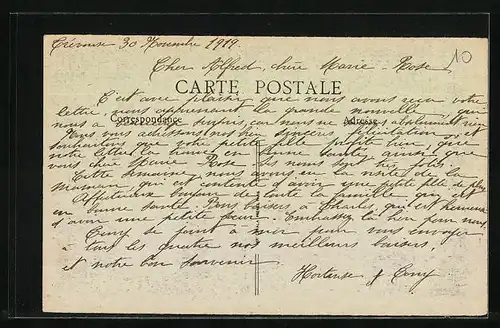 30 Novembre 1919
10
Cher Alfred, chère Marie-Rose
CARTE POSTALE
C'est avec plaisir que nous avons reçu votre
lettre, nous apprenant la grande nouvelle qui
nous a surpris, car nous ne absolument rien
Correspondance Adresse
Nous vous adressons nos bien sincères félicitations et
souhaitons que votre petite fille profite bien, que
notre lettre la trouve en bonne santé, ainsi que
vous chère Marie Rose
Cette semaine, nous avons eu la visite de la
maman, qui est contente d'avoir une petite fille de plus
de toute la famille qui est
en bonne santé. Bons baisers à Charles qui est heureux
d'avoir une petite sœur. Embrassez la bien pour nous.
se joint à moi pour vous envoyer
à tous les quatre nos meilleurs baisers
et notre bon souvenir
Hortense &